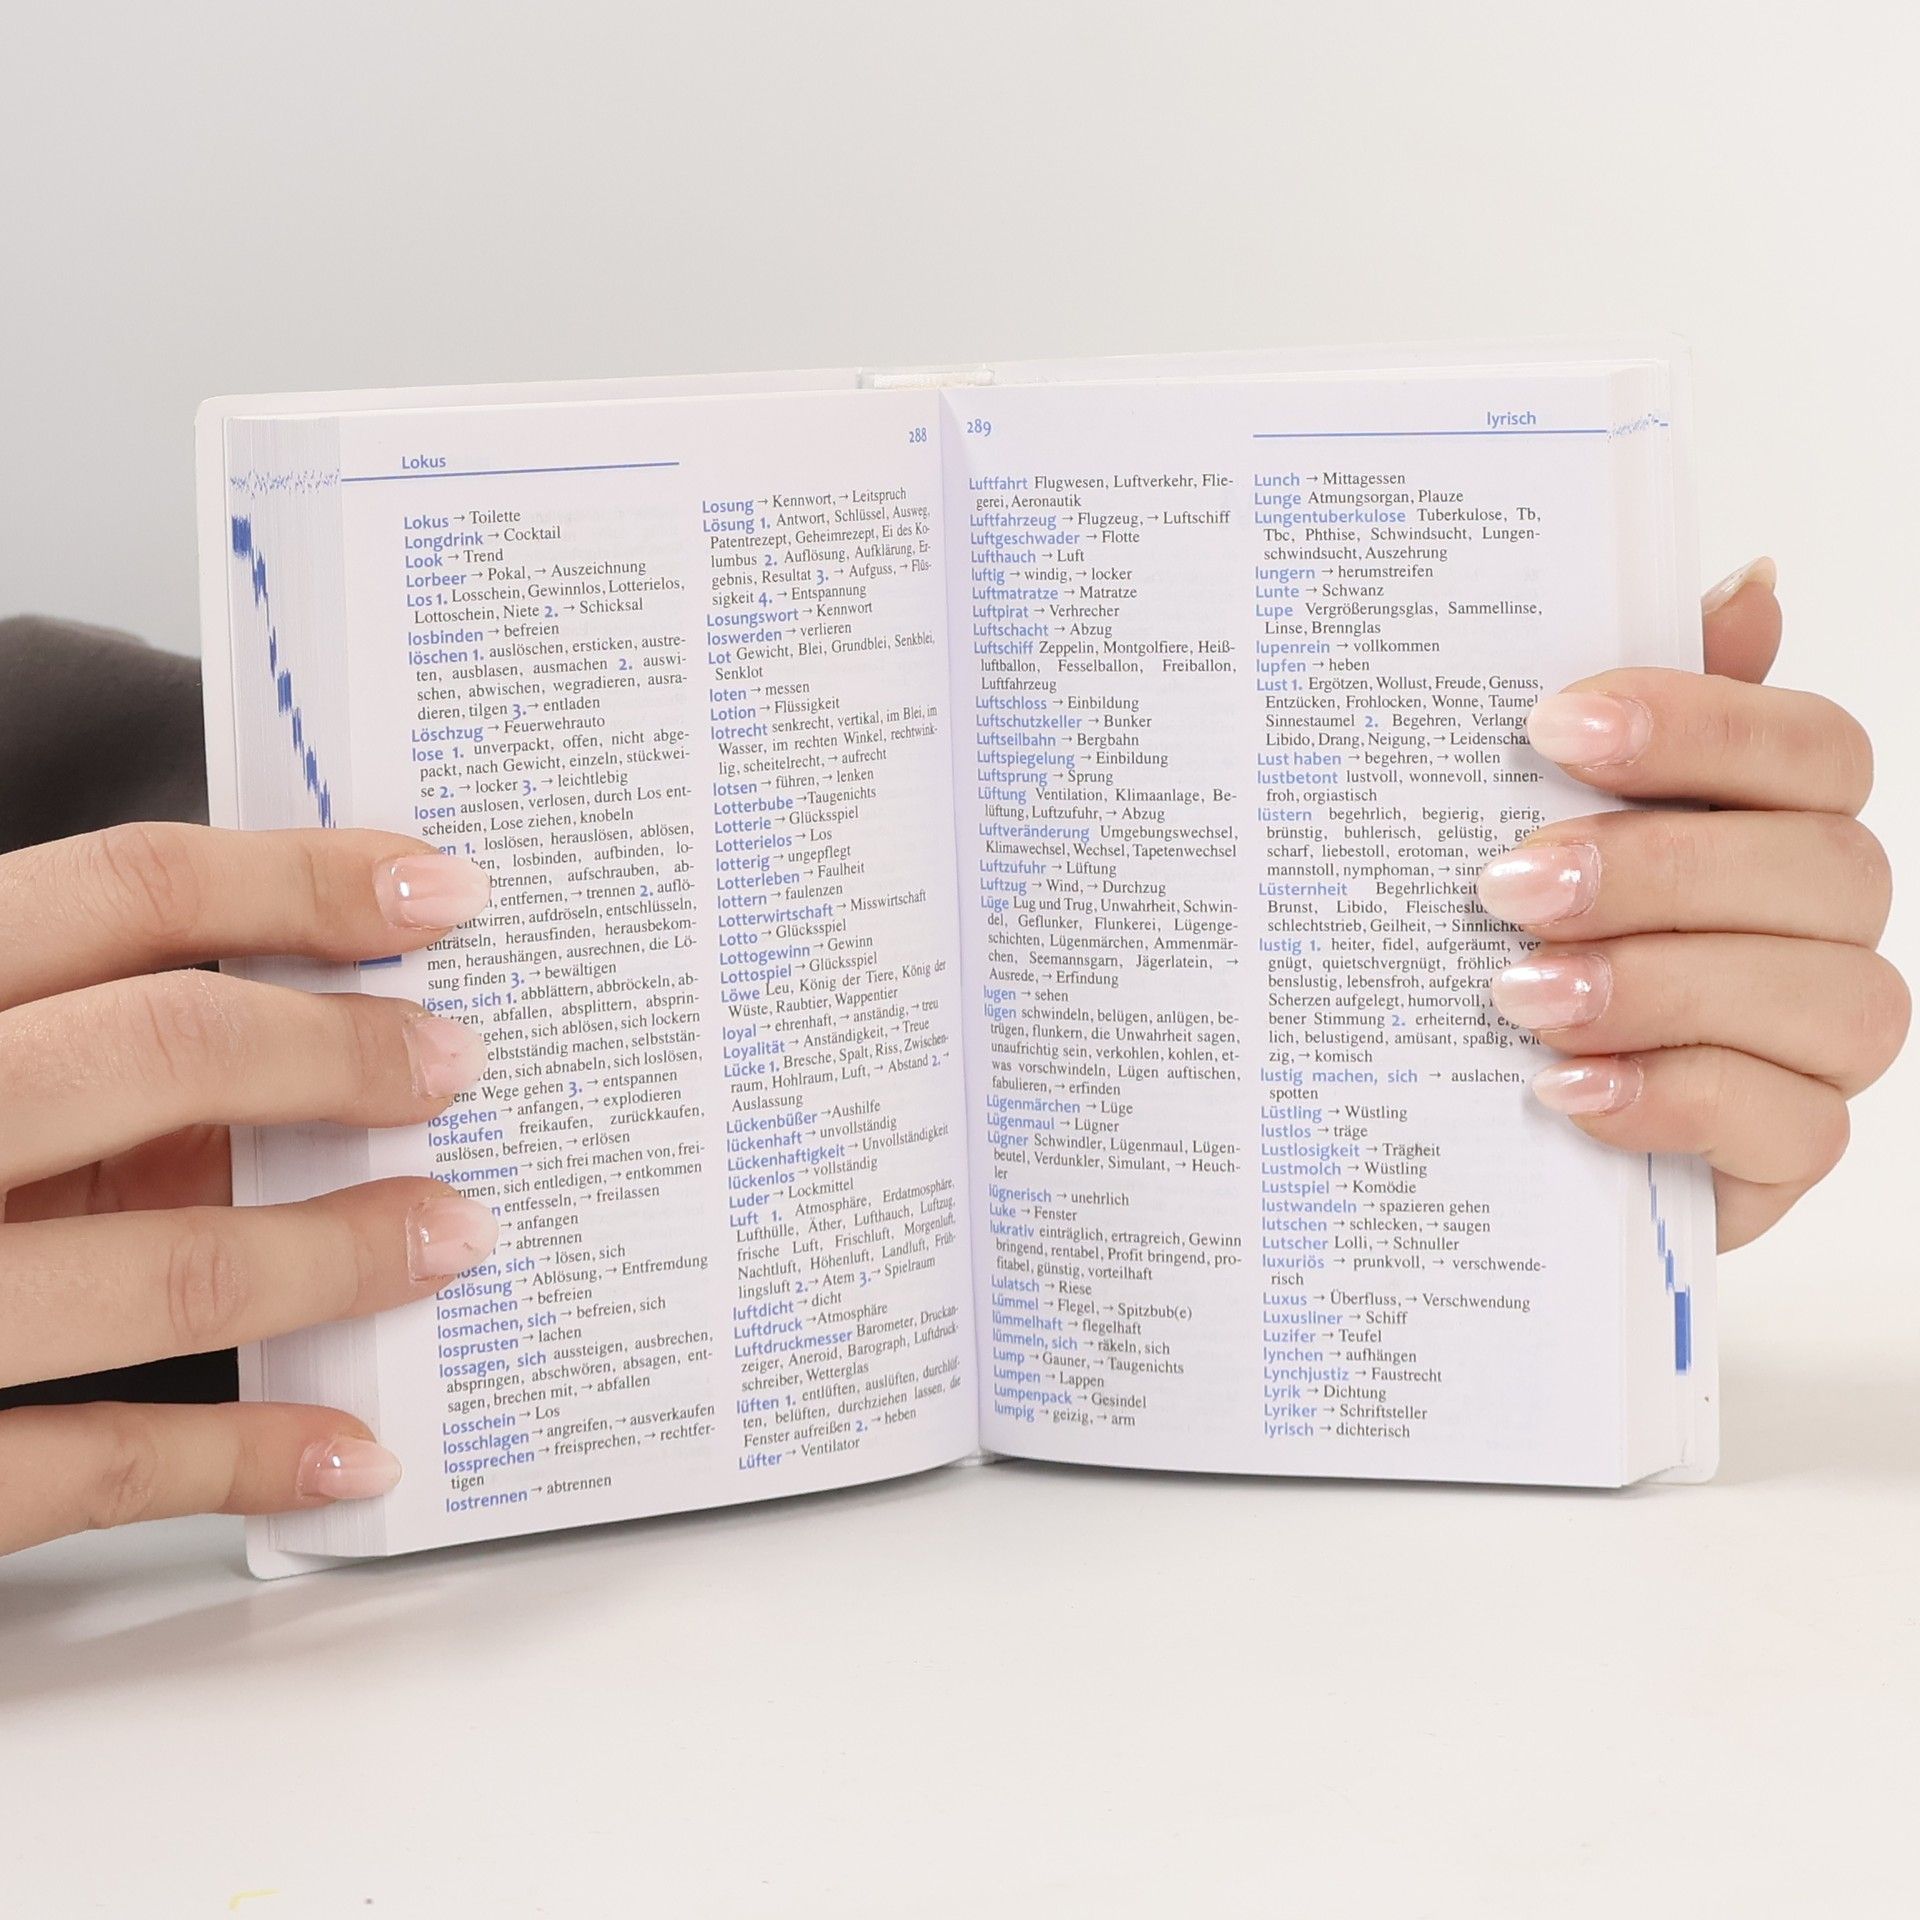 Lokus
288
Lokus → Toilette
Longdrink → Cocktail
Look → Trend
Lorbeer → Pokal, → Auszeichnung
Los 1. Losschein, Gewinnlos, Lotterielos,
Lottoschein, Niete 2. → Schicksal
losbinden → befreien
löschen 1. auslöschen, ersticken, austre-
ten, ausblasen, ausmachen 2. auswi-
schen, abwischen, wegradieren, ausra-
dieren, tilgen 3. → entladen
Löschzug → Feuerwehrauto
lose 1. unverpackt, offen, nicht abge-
packt, nach Gewicht, einzeln, stückwei-
se 2. → locker 3. → leichtlebig
losen auslosen, verlosen, durch Los ent-
scheiden, Lose ziehen, knobeln
1. loslösen, herauslösen, ablösen,
losbinden, aufbinden, lo-
aufschrauben, ab-
entfernen, → trennen 2. auflö-
aufdröseln, entschlüsseln,
enträtseln, herausfinden, herausbekom-
men, heraushängen, ausrechnen, die Lö-
sung finden 3. → bewältigen
lösen, sich 1. abblättern, abbröckeln, ab-
abfallen, absplittern, absprin-
sich ablösen, sich lockern
machen, selbststän-
sich abnabeln, sich loslösen,
Wege gehen 3. → entspannen
losgehen → anfangen, → explodieren
loskaufen freikaufen, zurückkaufen,
auslösen, befreien, → erlösen
loskommen → sich frei machen von, frei-
sich entledigen, → entkommen
entfesseln, → freilassen
→ anfangen
→ abtrennen
sich → lösen, sich
Loslösung → Ablösung, → Entfremdung
losmachen → befreien
losmachen, sich → befreien, sich
losprusten → lachen
lossagen, sich aussteigen, ausbrechen,
abspringen, abschwören, absagen, ent-
sagen, brechen mit, → abfallen
Losschein → Los
losschlagen → angreifen, → ausverkaufen
lossprechen → freisprechen, → rechtfer-
tigen
lostrennen → abtrennen
Losung → Kennwort, → Leitspruch
Lösung 1. Antwort, Schlüssel, Ausweg,
Patentrezept, Geheimrezept, Ei des Ko-
lumbus 2. Auflösung, Aufklärung, Er-
gebnis, Resultat 3. → Aufguss, → Flüs-
sigkeit 4. → Entspannung
Losungswort → Kennwort
loswerden → verlieren
Lot Gewicht, Blei, Grundblei, Senkblei,
Senklot
loten → messen
Lotion → Flüssigkeit
lotrecht senkrecht, vertikal, im Blei, im
Wasser, im rechten Winkel, rechtwink-
lig, scheitelrecht, → aufrecht
lotsen → führen, → lenken
Lotterbube → Taugenichts
Lotterie → Glücksspiel
Lotterielos → Los
lotterig → ungepflegt
Lotterleben → Faulheit
lottern → faulenzen
Lotterwirtschaft → Misswirtschaft
Lotto → Glücksspiel
Lottogewinn → Gewinn
Lottospiel → Glücksspiel
Löwe Leu, König der Tiere, König der
Wüste, Raubtier, Wappentier
loyal → ehrenhaft, → anständig, → treu
Loyalität → Anständigkeit, → Treue
Lücke 1. Bresche, Spalt, Riss, Zwischen-
raum, Hohlraum, Luft, → Abstand 2. →
Auslassung
Lückenbüßer → Aushilfe
lückenhaft → unvollständig
Lückenhaftigkeit → Unvollständigkeit
lückenlos → vollständig
Luder → Lockmittel
Luft 1. Atmosphäre, Erdatmosphäre,
Lufthülle, Äther, Lufthauch, Luftzug,
frische Luft, Frischluft, Morgenluft,
Nachtluft, Höhenluft, Landluft, Früh-
lingsluft 2. → Atem 3. → Spielraum
luftdicht → dicht
Luftdruck → Atmosphäre
Luftdruckmesser Barometer, Druckan-
zeiger, Aneroid, Barograph, Luftdruck-
schreiber, Wetterglas
lüften 1. entlüften, auslüften, durchlüf-
ten, belüften, durchziehen lassen, die
Fenster aufreißen 2. → heben
Lüfter → Ventilator
289
lyrisch
Luftfahrt Flugwesen, Luftverkehr, Flie-
gerei, Aeronautik
Luftfahrzeug → Flugzeug, → Luftschiff
Luftgeschwader → Flotte
Lufthauch → Luft
luftig → windig, → locker
Luftmatratze → Matratze
Luftpirat → Verbrecher
Luftschacht → Abzug
Luftschiff Zeppelin, Montgolfiere, Heiß-
luftballon, Fesselballon, Freiballon,
Luftfahrzeug
Luftschloss → Einbildung
Luftschutzkeller → Bunker
Luftseilbahn → Bergbahn
Luftspiegelung → Einbildung
Luftsprung → Sprung
Lüftung Ventilation, Klimaanlage, Be-
lüftung, Luftzufuhr, → Abzug
Luftveränderung Umgebungswechsel,
Klimawechsel, Wechsel, Tapetenwechsel
Luftzufuhr → Lüftung
Luftzug → Wind, → Durchzug
Lüge Lug und Trug, Unwahrheit, Schwin-
del, Geflunker, Flunkerei, Lügenge-
schichten, Lügenmärchen, Ammenmär-
chen, Seemannsgarn, Jägerlatein, →
Ausrede, → Erfindung
lugen → sehen
lügen schwindeln, belügen, anlügen, be-
trügen, flunkern, die Unwahrheit sagen,
unaufrichtig sein, verkohlen, kohlen, et-
was vorschwindeln, Lügen auftischen,
fabulieren, → erfinden
Lügenmärchen → Lüge
Lügenmaul → Lügner
Lügner Schwindler, Lügenmaul, Lügen-
beutel, Verdunkler, Simulant, → Heuch-
ler
lügnerisch → unehrlich
Luke → Fenster
lukrativ einträglich, ertragreich, Gewinn
bringend, rentabel, Profit bringend, pro-
fitabel, günstig, vorteilhaft
Lulatsch → Riese
Lümmel → Flegel, → Spitzbub(e)
lümmelhaft → flegelhaft
lümmeln, sich → räkeln, sich
Lump → Gauner, → Taugenichts
Lumpen → Lappen
Lumpenpack → Gesindel
lumpig → geizig, → arm
Lunch → Mittagessen
Lunge Atmungsorgan, Plauze
Lungentuberkulose Tuberkulose, Tb,
Tbc, Phthise, Schwindsucht, Lungen-
schwindsucht, Auszehrung
lungern → herumstreifen
Lunte → Schwanz
Lupe Vergrößerungsglas, Sammellinse,
Linse, Brennglas
lupenrein → vollkommen
lupfen → heben
Lust 1. Ergötzen, Wollust, Freude, Genuss,
Entzücken, Frohlocken, Wonne, Taumel
Sinnestaumel 2. Begehren,
Libido, Drang, Neigung, →
Lust haben → begehren, → wollen
lustbetont lustvoll, wonnevoll, sinnen-
froh, orgiastisch
lüstern begehrlich, begierig, gierig,
brünstig, buhlerisch, gelüstig,
scharf, liebestoll, erotoman,
mannstoll, nymphoman, →
Lüsternheit Begehrlichkeit
Brunst, Libido,
schlechtstrieb, Geilheit, →
lustig 1. heiter, fidel, aufgeräumt, ver
gnügt, quietschvergnügt, fröhlich
benslustig, lebensfroh,
Scherzen aufgelegt, humorvoll,
bener Stimmung 2. erheiternd,
lich, belustigend, amüsant, spaßig, wit
zig, → komisch
lustig machen, sich → auslachen,
spotten
Lüstling → Wüstling
lustlos → träge
Lustlosigkeit → Trägheit
Lustmolch → Wüstling
Lustspiel → Komödie
lustwandeln → spazieren gehen
lutschen → schlecken, → saugen
Lutscher Lolli, → Schnuller
luxuriös → prunkvoll, → verschwende-
risch
Luxus → Überfluss, → Verschwendung
Luxusliner → Schiff
Luzifer → Teufel
lynchen → aufhängen
Lynchjustiz → Faustrecht
Lyrik → Dichtung
Lyriker → Schriftsteller
lyrisch → dichterisch